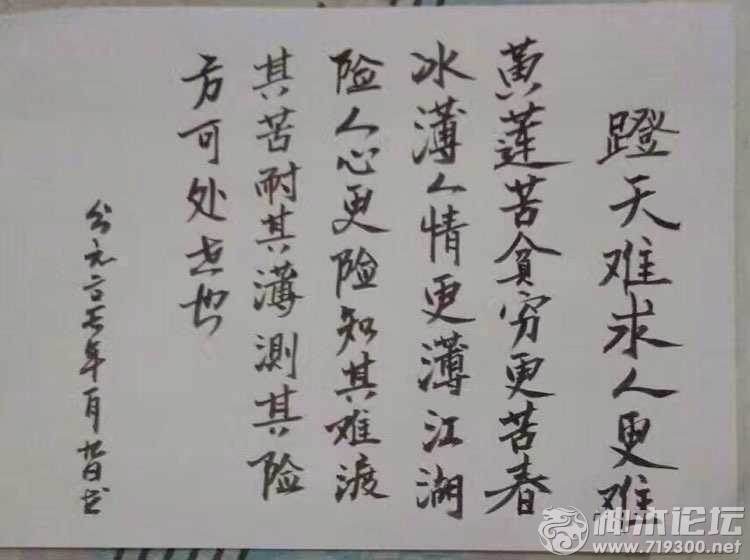 蹬天难求人更难
黄莲苦贫穷更苦春
冰薄人情更薄江湖
险人心更险知其难渡
其苦耐其薄测其险
方可处世也
神木论坛
www.719300.net